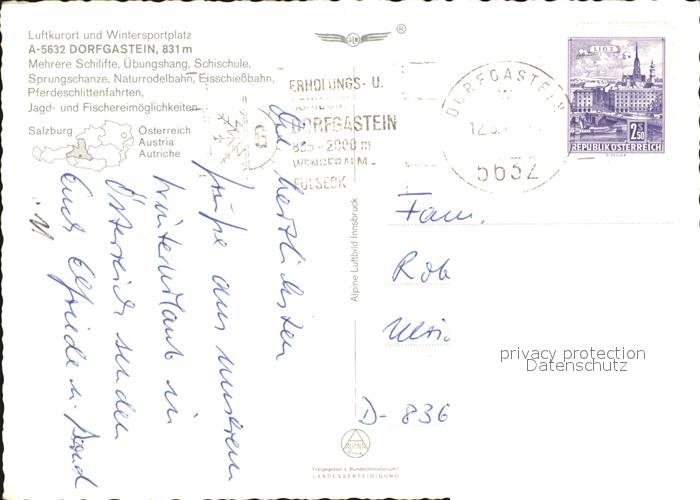 Luftkurort und Wintersportplatz
A-5632 DORFGASTEIN, 831 m
Mehrere Schilifte, Übungshang, Schischule,
Sprungschanze, Naturrodelbahn, Eisschießbahn,
Pferdeschlittenfahrten,
Jagd- und Fischereimöglichkeiten
Salzburg
Österreich
Austria
Autriche
ERHOLUNGS- U.
DORFGASTEIN
835 - 2000 m
FULSECK
DORFGASTEIN
5632
LINZ
2.50
REPUBLIK ÖSTERREICH
Die herzlichsten
Grüße aus unserem
Winterurlaub in
Österreich senden
Euch Elfriede u. Bernd
Alpine Luftbild Innsbruck
Fam.
Rob
Ulri
D- 836
privacy protection
Datenschutz
Freigegeben v. Bundesministerium f.
LANDESVERTEIDIGUNG